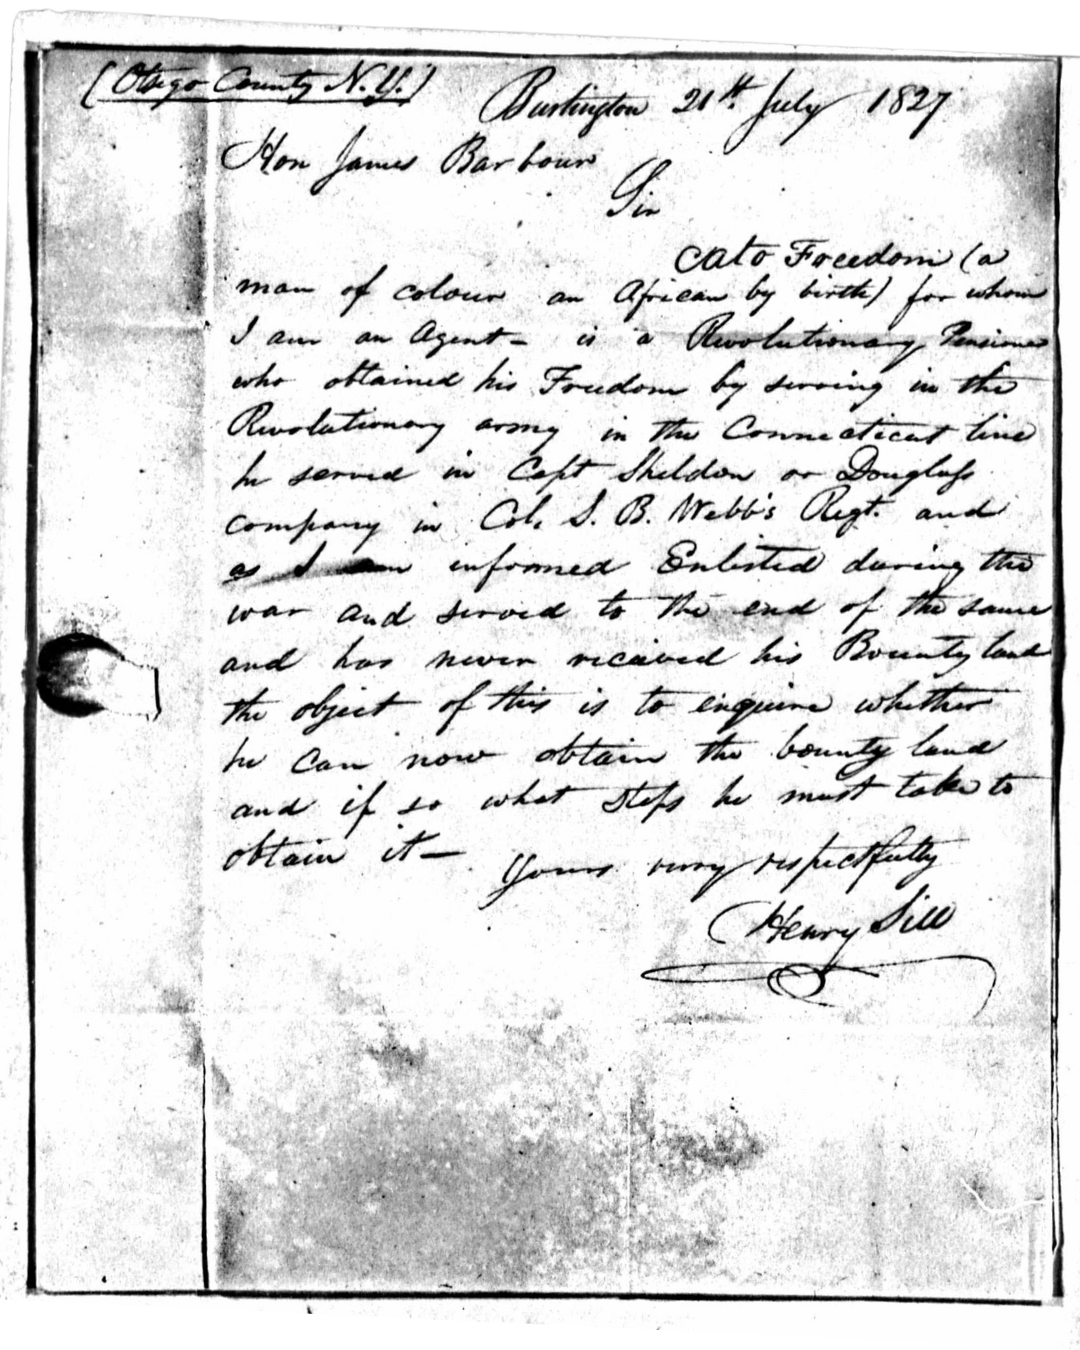 (Otsego County N.Y.)
Burlington 21st. July 1827
Hon James Barbour
Sir
Cato Freedom (a
man of colour an African by birth) for whom
I am an Agent – is a Revolutionary Pensioner
who obtained his Freedom by serving in the
Revolutionary army in the Connecticut line
he served in Capt Sheldon or Douglass
company in Col. S. B. Webb's Regt. and
as I am informed Enlisted during the
war and served to the end of the same
and has never recieved his Bounty land
the object of this is to enquire whether
he can now obtain the bounty land
and if so what steps he must take to
obtain it –
Yours very respectfully
Henry Sill